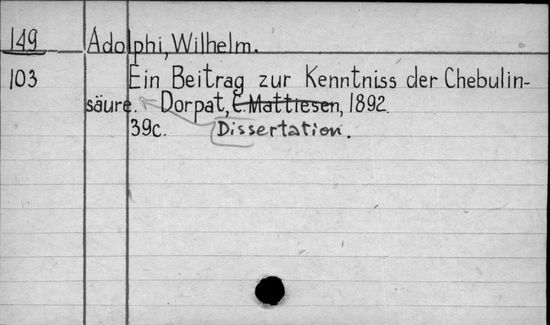 149 Adolphi, Wilhelm.
103 Ein Beitrag zur Kenntniss der Chebulin-
säure. Dorpat, C. Mattiesen, 1892.
39c. Dissertation.